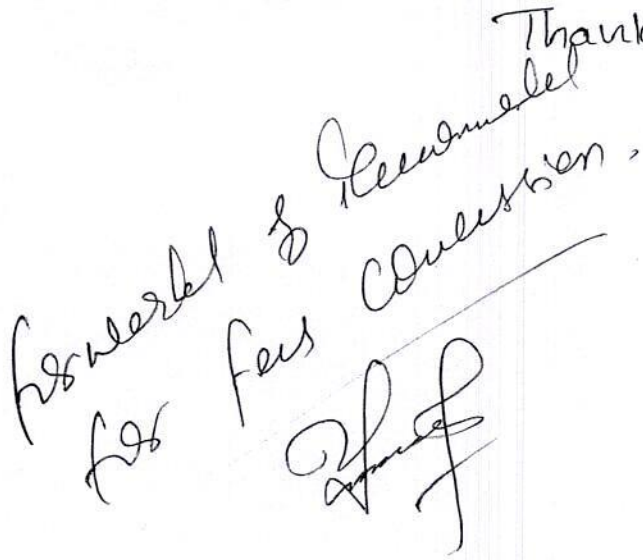 Thank
forwarded & Recommended
for fees concession.